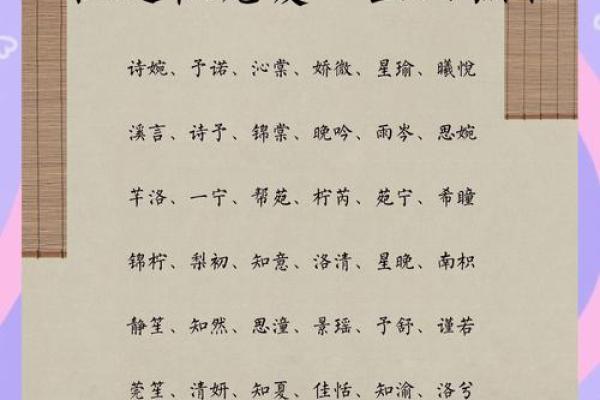 诗婉、予诺、沁棠、娇微、星瑜、曦悦
溪言、诗予、锦棠、晚吟、雨岑、思婉
芊洛、一宁、帮苑、柠芮、苑宁、希瞳
锦柠、梨初、知意、洛清、星晚、南枳
静笙、知然、思潼、景瑶、予舒、谨若
莞笙、清妍、知夏、佳恬、知渝、洛兮